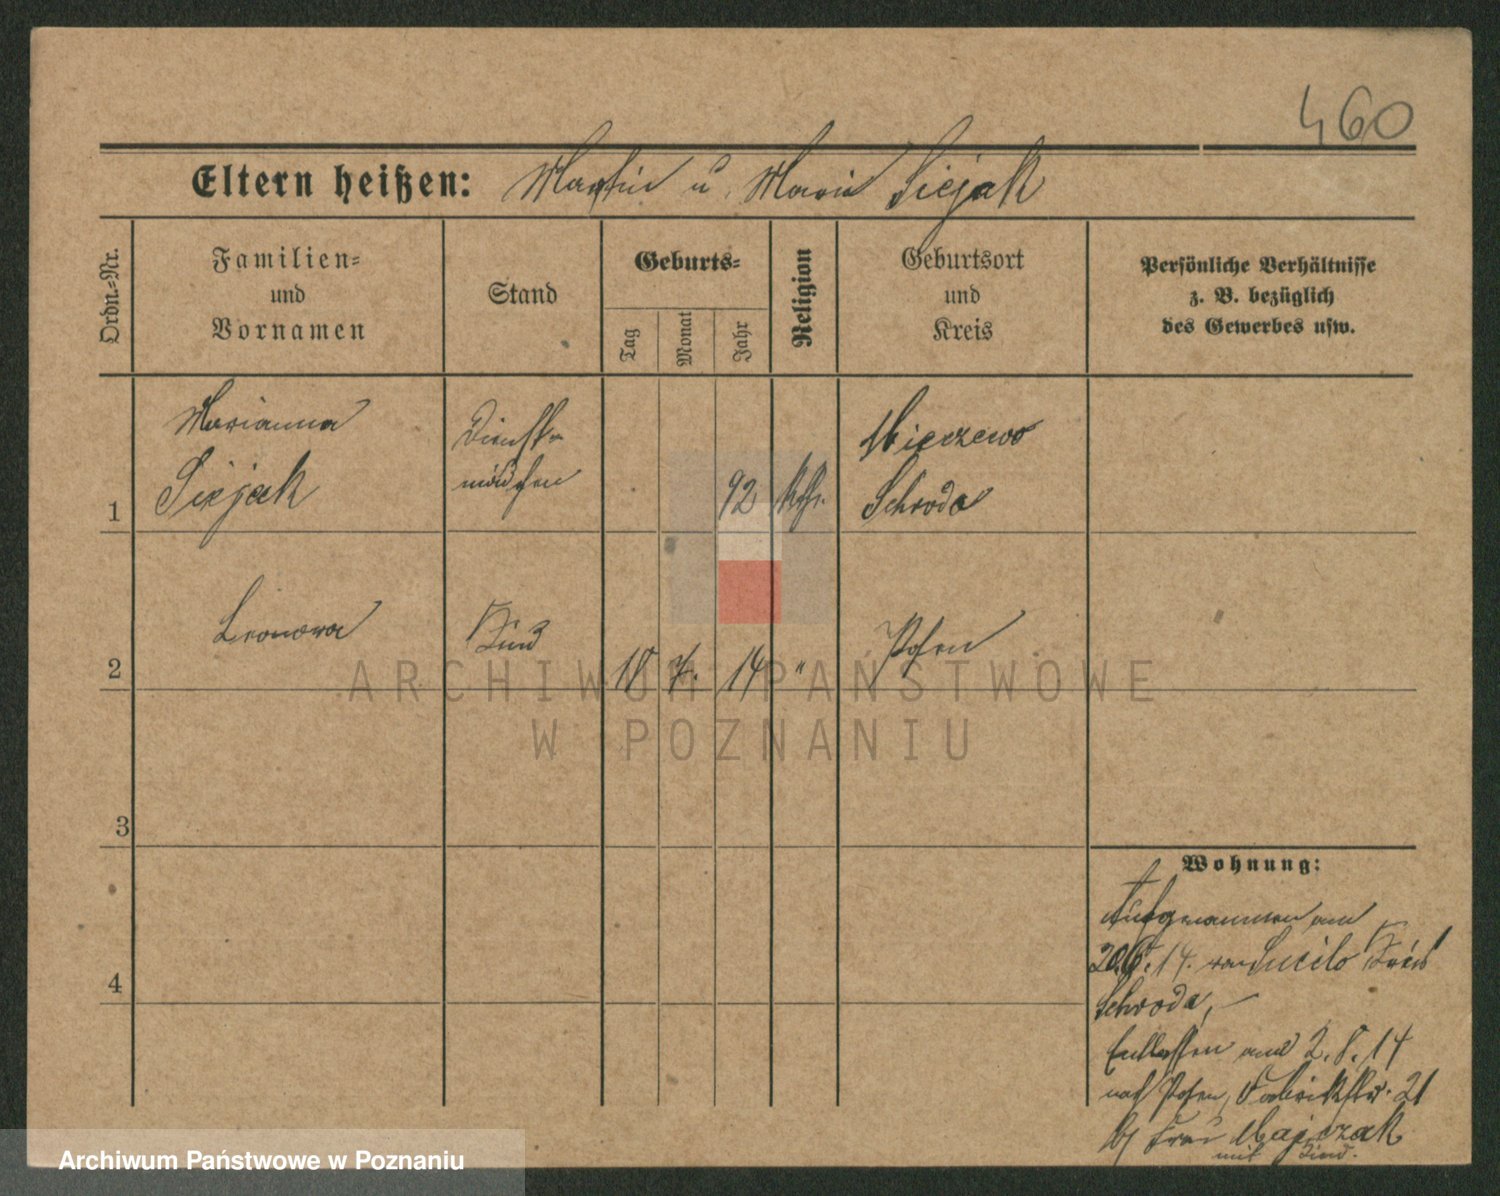 460
Eltern heißen: Martin u. Marie Siejak
Ordn.-Nr.
Familien-
und
Vornamen
Stand
Geburts-
Tag
Monat
Jahr
Religion
Geburtsort
und
Kreis
Persönliche Verhältnisse
z. B. bezüglich
des Gewerbes usw.
1
Marianna
Siejak
Dienst-
mädchen
92
kath.
Schroda
2
Leonora
Kind
18
7.
14
"
Posen
3
4
Wohnung:
Aufgenommen am
20.6.14. von Kreis
Schroda,
Entlassen am 2.8.14
nach Posen, Fabrikstr. 21
b/ Frau Majczak
mit Kind.
ARCHIWUM PAŃSTWOWE
W POZNANIU
Archiwum Państwowe w Poznaniu